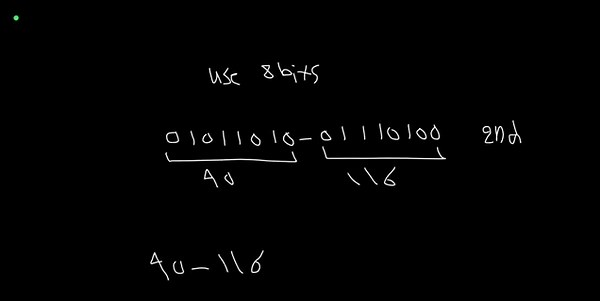 use 8bits
01011010-01110100 2nd
90 116
90-116